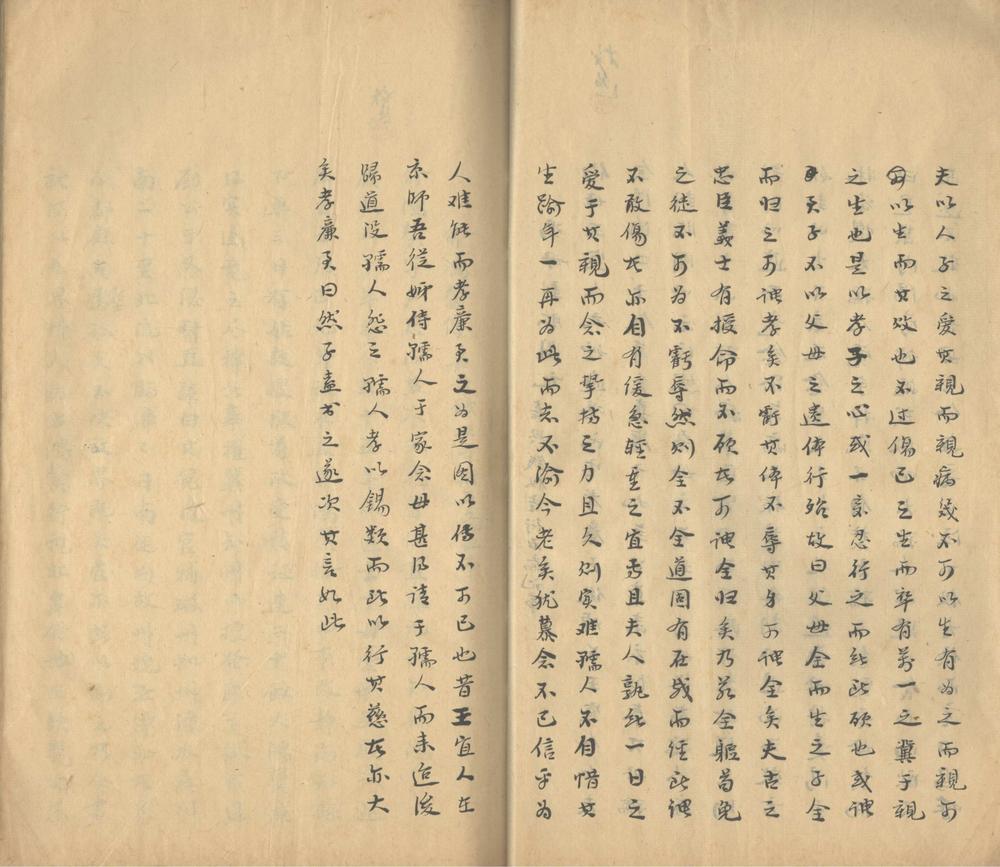 夫以人子之愛其親而親病幾不可以生有為之而親可
以生而其效也不过傷己之生而率有萬一之冀于親
之生也是以孝子之心或一裛忍行之而絕趾顧也或謂
天子不以父母之遗体行殆故曰父母全而生之子全
而归之可谓孝矣不虧其体不辱其身可谓全矣夫古之
忠臣義士有授命而不顾者可谓全归矣乃若全軀苟免
之徒不可为不虧辱然则全不全道固有在或而徑趾谓
不敢傷者示自有缓急輕重之宜焉且夫人孰绝一日之
愛于其親而念之挚持之力且久则实难孺人不自惜其
生踰年一再为此而志不渝今老矣犹慕念不已信乎为
人难能而孝廉吏之为是圖以傳不可已也昔王宜人在
京師吾從姊侍孺人于家念母甚因请于孺人而未迨後
歸道没孺人怨之孺人孝以錫類而趾以行其慈者亦大
矣孝廉吏曰然子盍书之遂次其言如此